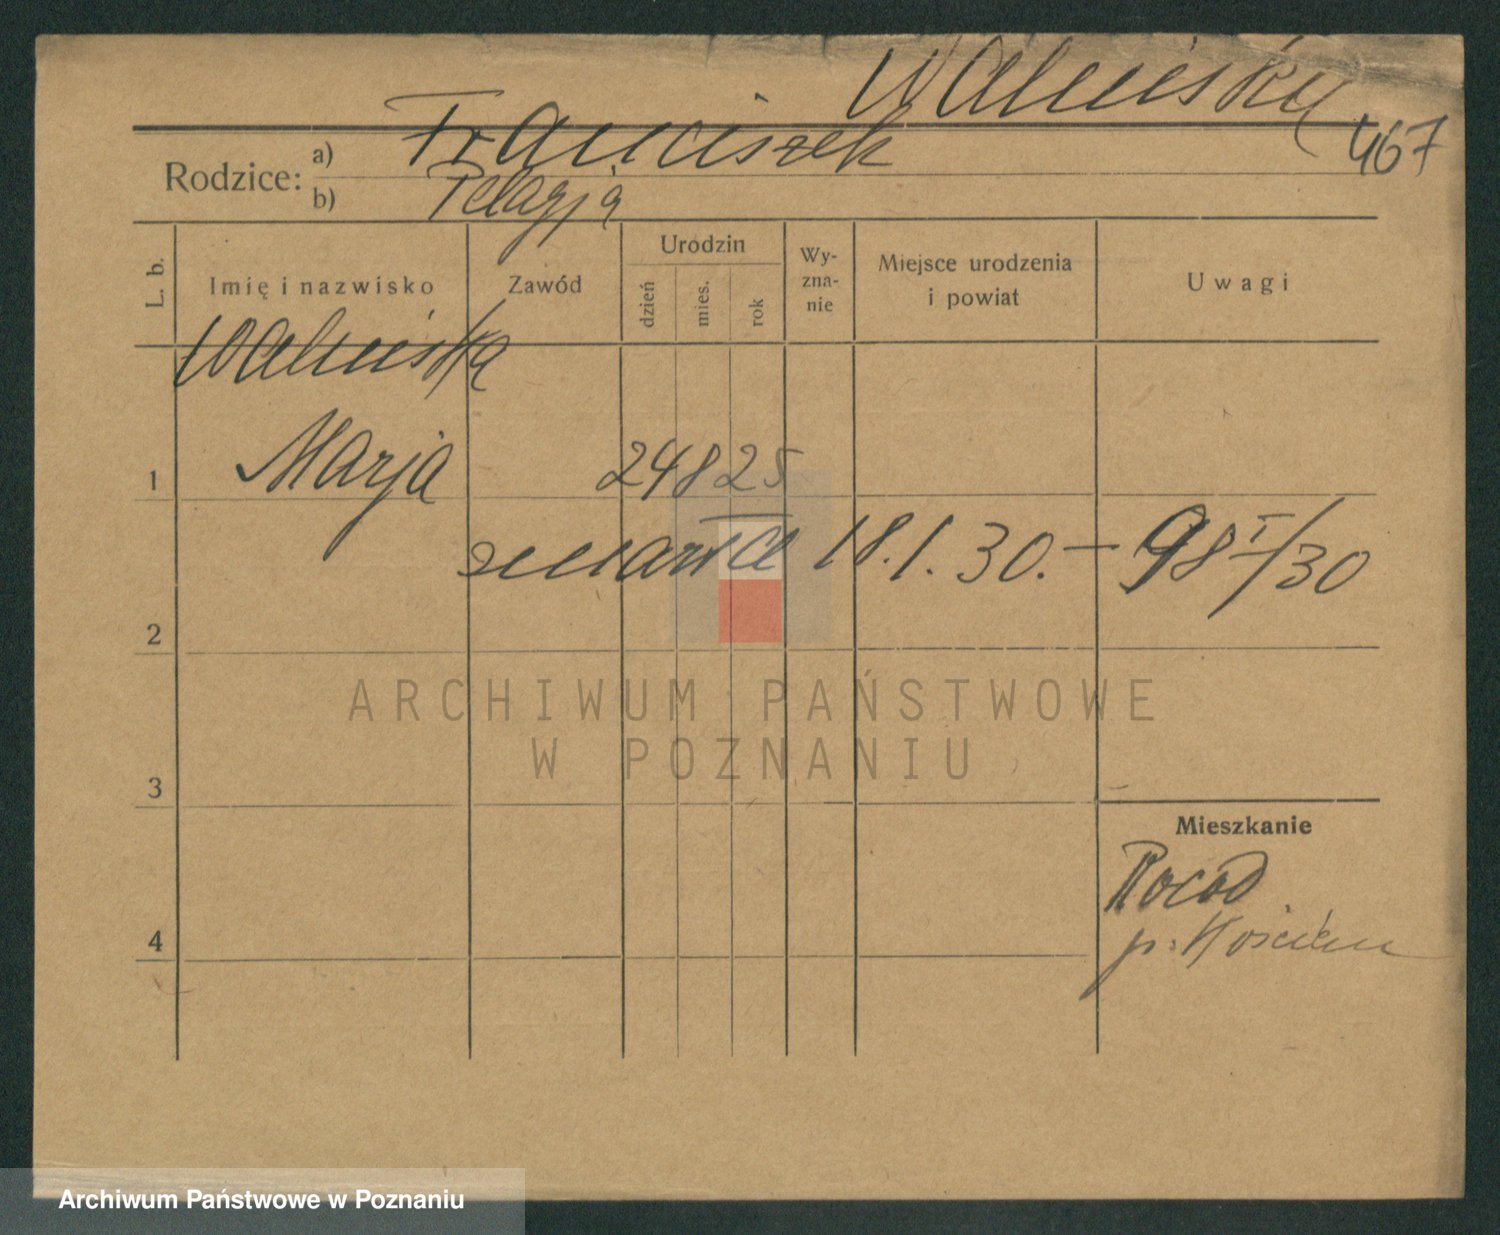 Waliński
467
Rodzice: a) Franciszek
b) Pelagja
L. b. Imię i nazwisko Zawód Urodzin dzień mies. rok Wy-zna-nie Miejsce urodzenia i powiat Uwagi
Walińska
1 Marja 24 8 25
zmarła 18.1.30. — 98 I/30
2
ARCHIWUM PAŃSTWOWE
W POZNANIU
3
Mieszkanie
p. Kościan
4
Archiwum Państwowe w Poznaniu